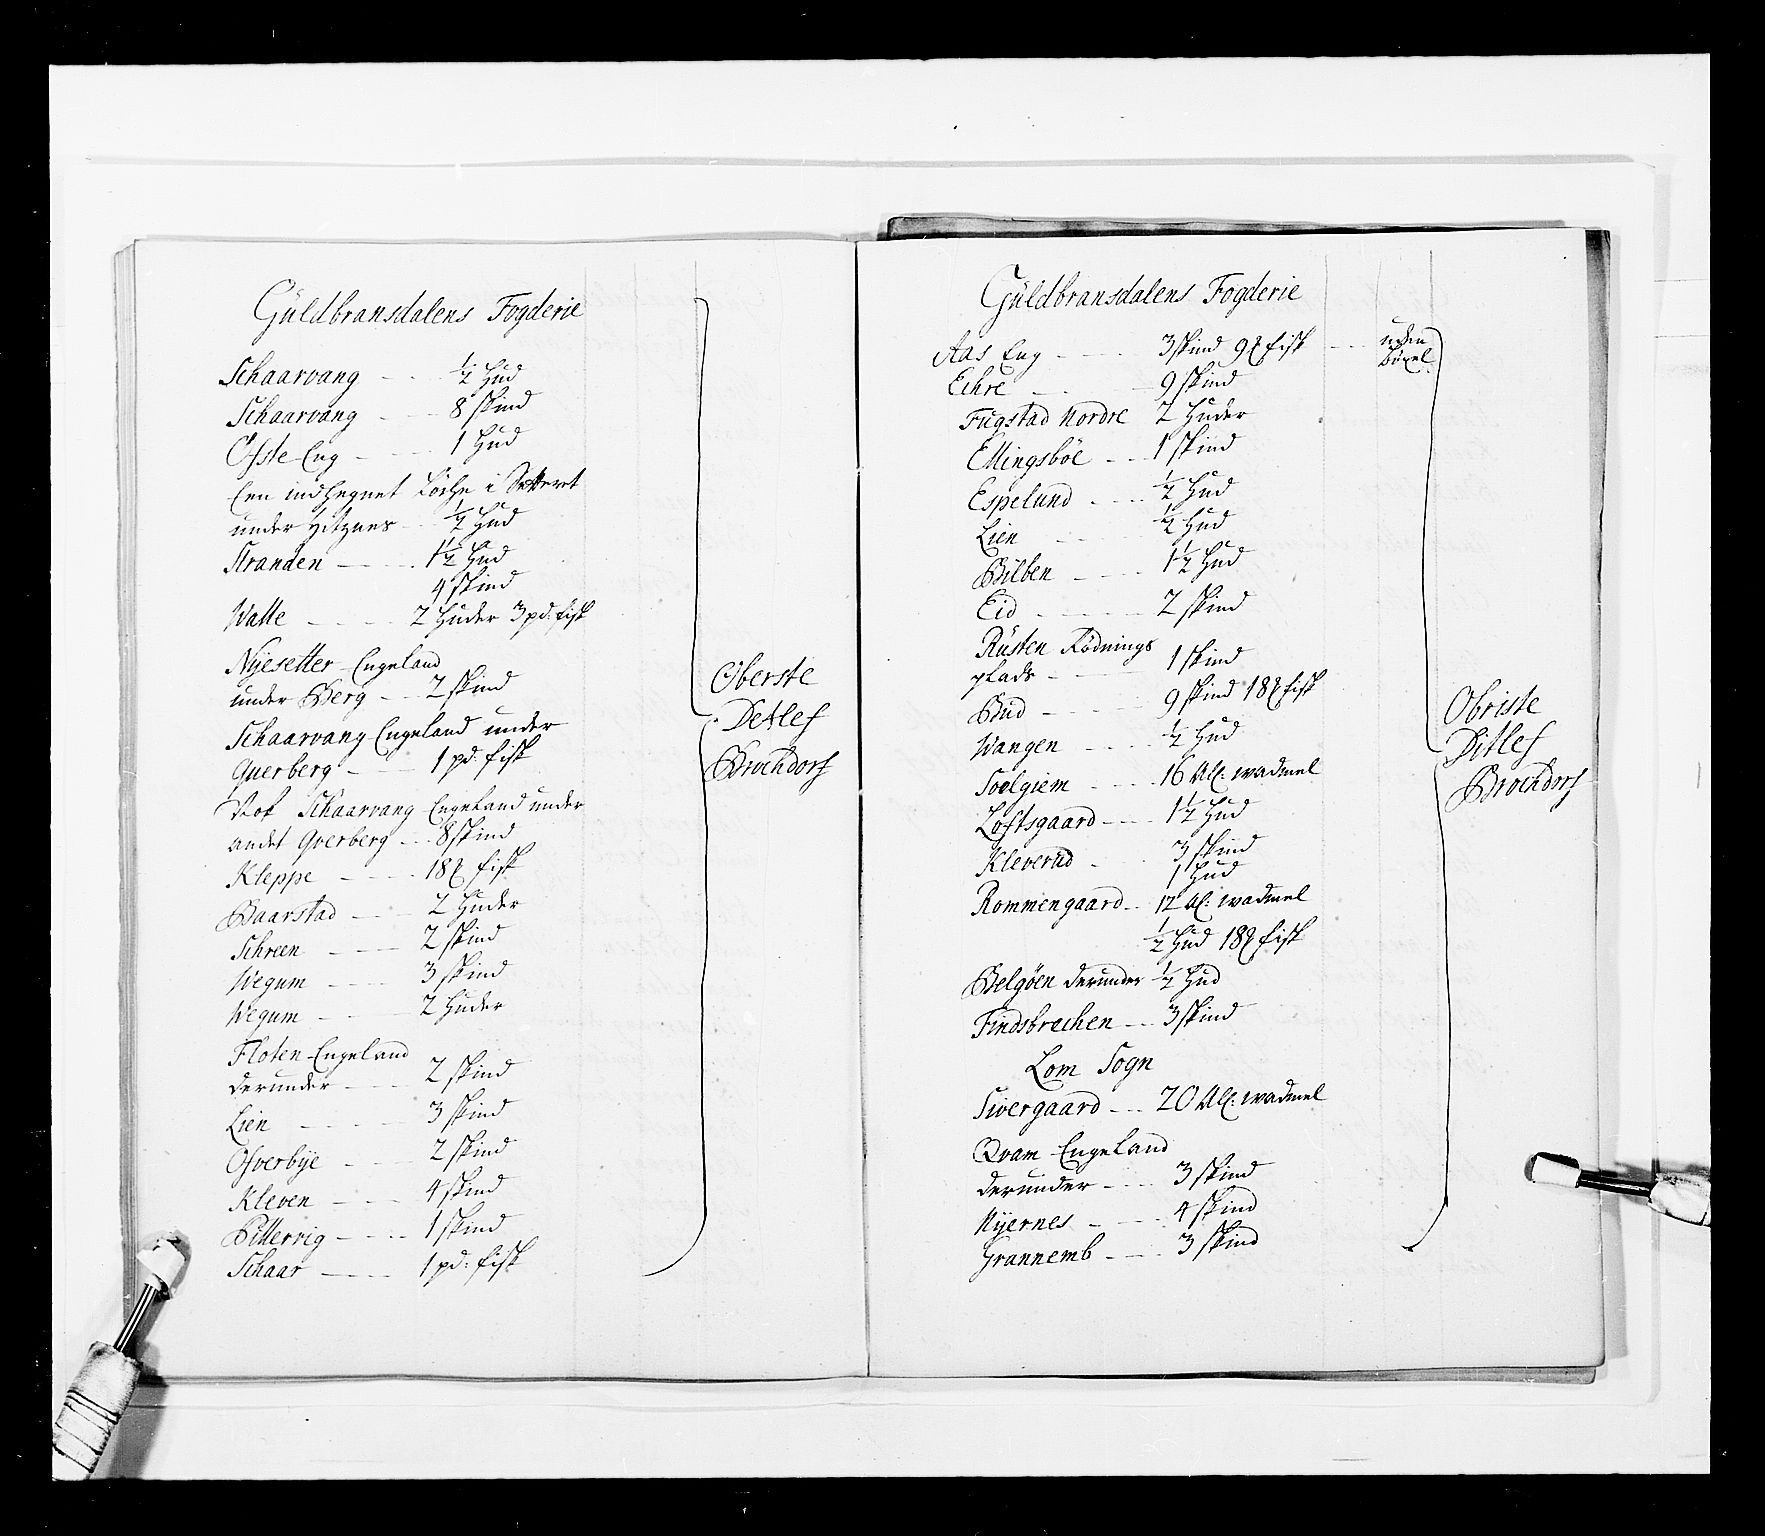 Güldbransdalens Fogderie
Schaarvang - - - ½ Hud
Schaarvang - - - 8 skind
Ofste Eng - - - 1 Hud
Een indhegnet Löche i
under - - ½ Hud
Stranden - - - 1½ Hud
4 skind
Walle - - - 2 Huder 3 pd: fisk
Nÿesetter Engeland
under Berg - - 2 skind
Schaarvang Engeland under
Qverberg - - - 1 pd: fisk
Nok Schaarvang Engeland under
andet Qverberg - - - 8 skind
Kleppe - - - 18 ℔ fisk
Baarstad - - - 2 Huder
Schreen - - - 2 skind
Wegum - - - 3 skind
Wegum - - - 2 Huder
Floten Engeland
derunder - - - 2 skind
Lien - - - 3 skind
Ofverbÿe - - - 2 skind
Kleven - - - 4 skind
Pillervig - - - 1 skind
Schaar - - - 1 pd: fisk
Oberste
Detlef
Brochdorf
Güldbransdalens Fogderie
Aas Eng - - - 3 skind 9 ℔ fisk - - - uden
böxel.
Echre - - - 9 skind
Fugstad Nordre 2 Huder
Ellingsböe - - - 1 skind
Espelund - - - ½ Hud
Lien - - - ½ Hud
Bilben - - - 1½ Hud
Eid - - - 2 skind
Rüsten Rödnings
plads - - - 1 skind
Bud - - - 9 skind 18 ℔ fisk
Wangen - - - ½ Hud
Soelgiem - - - 16 All: wadmel
Loftsgaard - - - 1½ Hud
Kleverud - - - 3 skind
1 Hud
Rommengaard - - 12 Al: wadmel
½ Hud 18 ℔ fisk
Belgöen derunder ½ Hud
Findsbrechen - - - 3 skind
Lom Sogn
Sivergaard - - - 20 All: wadmel
Qvam Engeland
derunder - - - 3 skind
Nÿernes - - - 4 skind
Grannemb - - - 3 skind
Obriste
Ditlef
Brochdorf